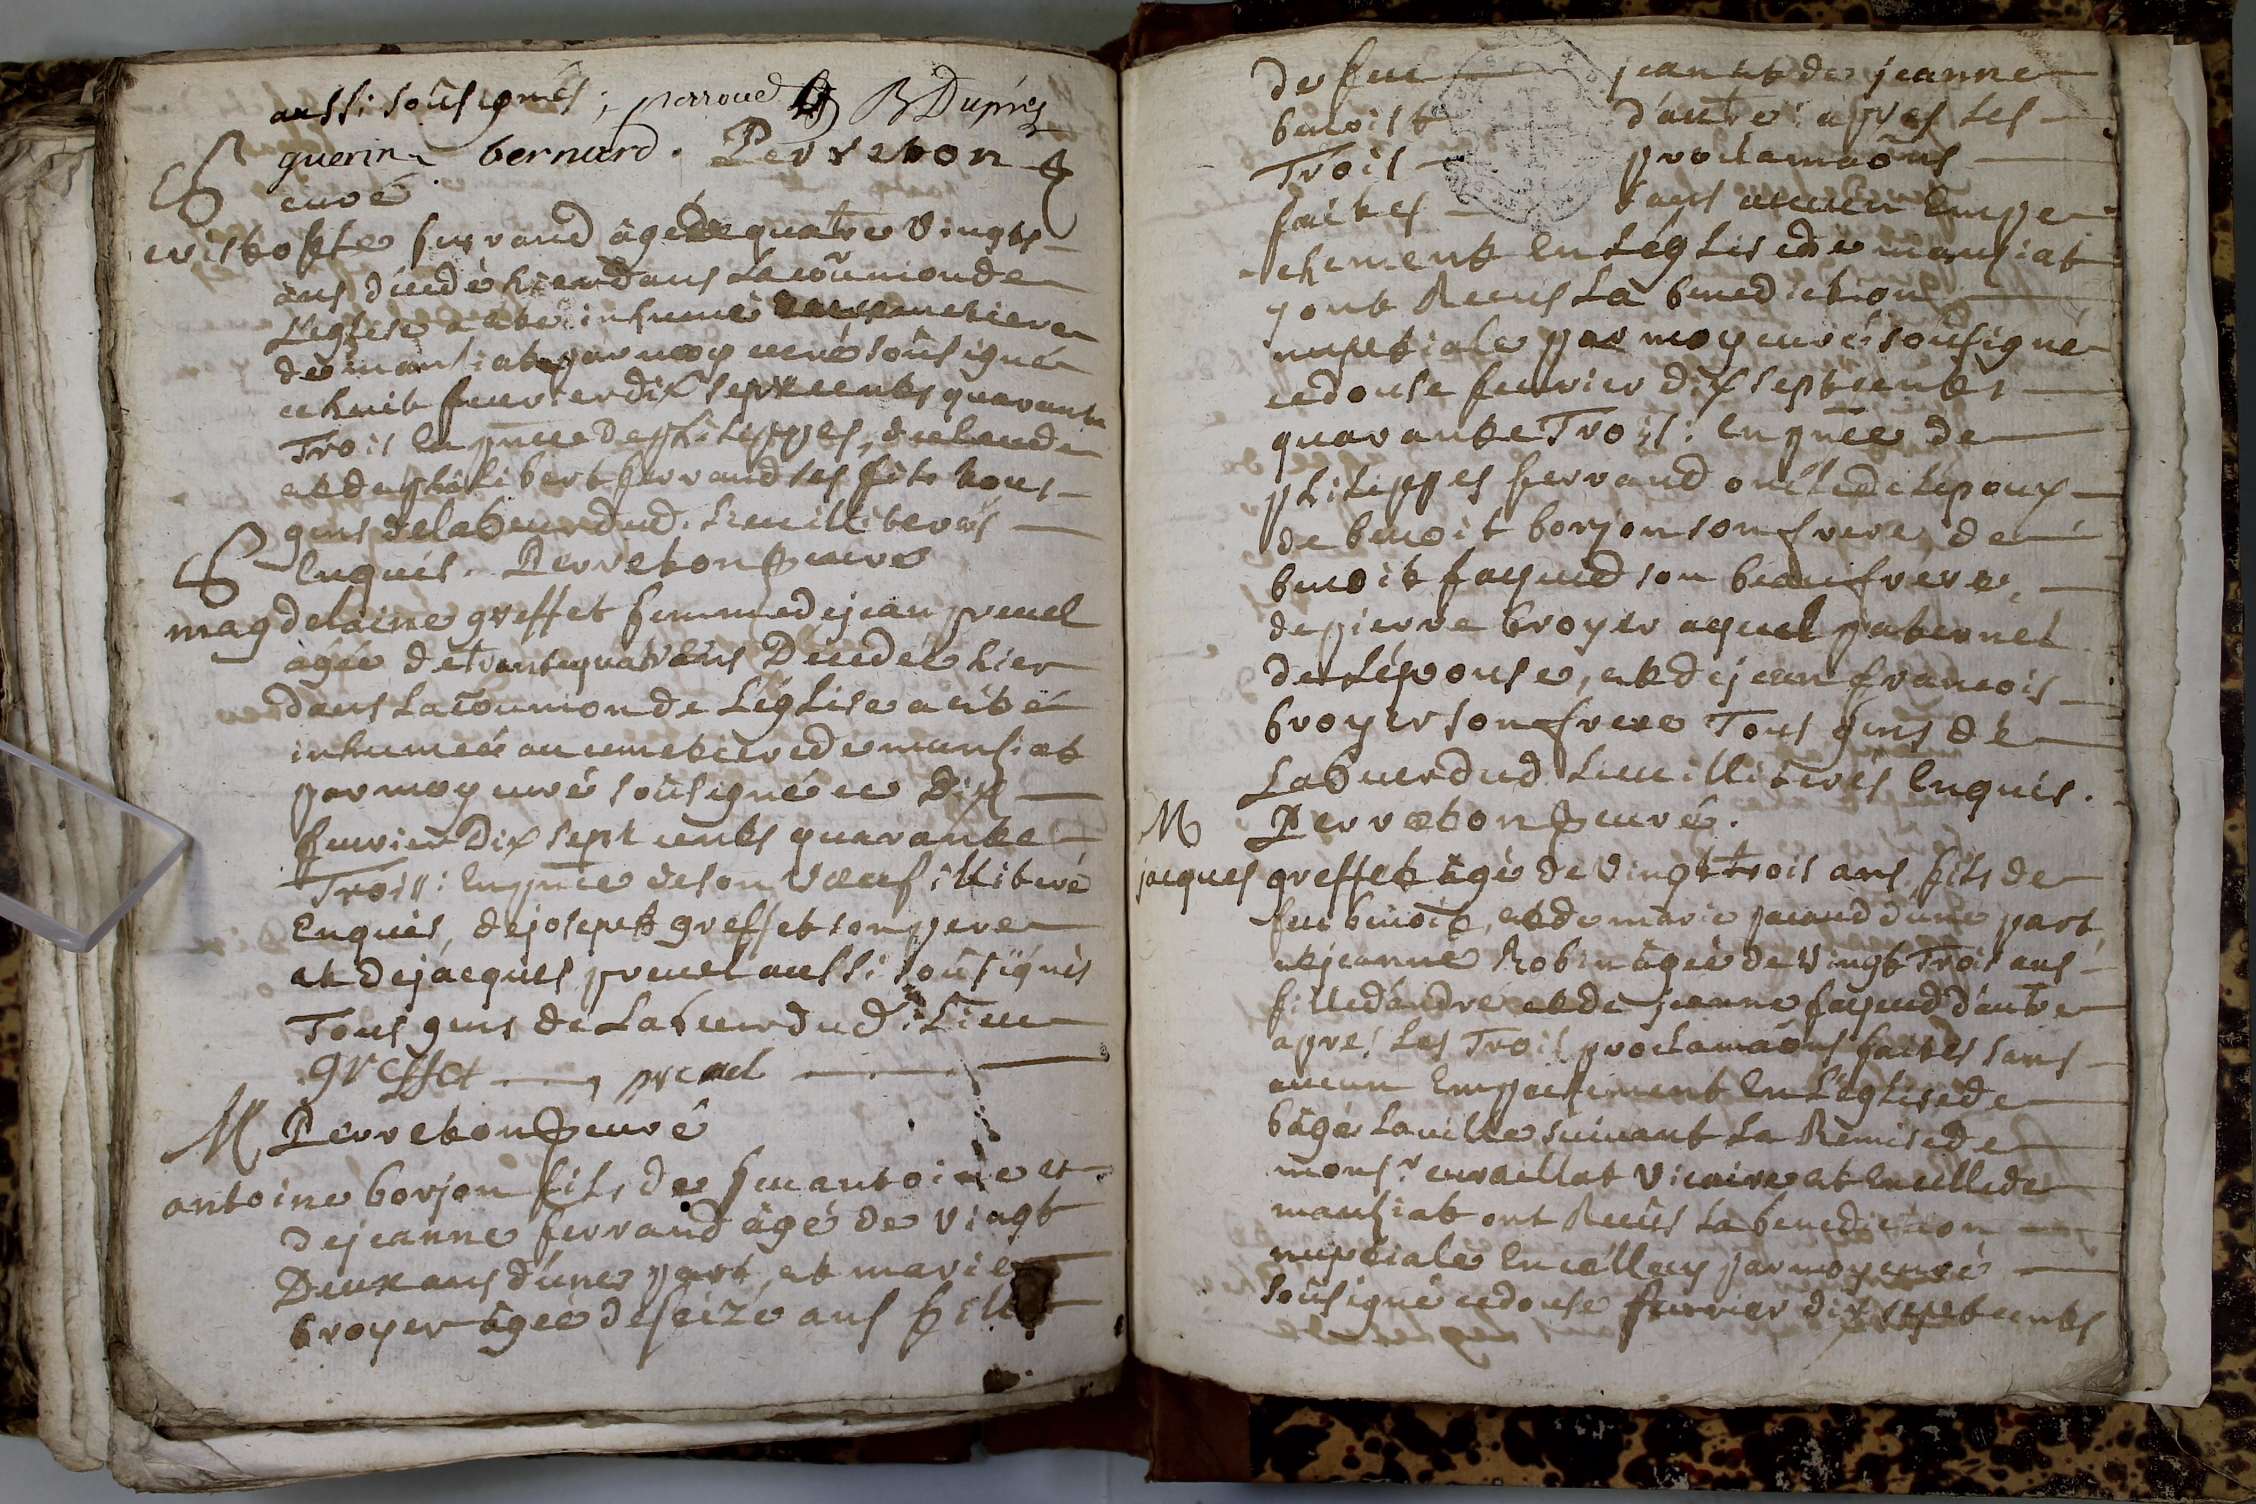 aussi soûsignés ; perroud B Dupres
guerin bernard . Perreton
curé
S
cristofle ferrand âgé de quatre vingts
ans décédé hier dans la coûmion de
L'eglise a eté inhumé au cemetiere
de mansiat par moy curé soûsigné
ce huit fevrier dix sept cents quarante
Trois En pn̄ce de philippes, de Claude
et de philibert ferrand ses fils tous
gens de labeur dud. Lieu illiterés
Enquis. Perreton curé
S
magdelaine greffet femme de jean preuel
âgée de trente quatre ans Decedée hier
dans la coūmion de L'églLise a eté
inhumée au cemetiere de mansiat
par moy curé soûsigné ce Dix
fevrier Dix sept cents quarante
Trois : En pn̄ce de son Veuf illiteré
Enquis, de joseph greffet son pere
et de jacques preuel aussi soûsignés
Tous gens de Labeur dud. Lieu
greffet preuel
M Perreton curé
antoine borjon fils de feu antoine et
de jeanne ferrand âgé de vingt
Deux ans d'une part, et marie
broyer âgée de seize ans fille
de feu jean et de jeanne
benoist d'autre : apres Les
Trois proclamaōns
faites sans aucun Empe
chement En L'églLise de mansiat
y ont Receus La benediction
nuptiale par moy curé soûsigné
ce douse fevrier dix sept cents
quarante Trois : En pn̄ce de
philippes ferrand oncle de L'époux
de benoit borjon son frere, de
benoit fayend son beau frere,
de pierre broyer ayeul paternel
de L'épouse, et de jean francois
broyer son frere Tous gens de
Labeur dud Lieu illiterés Enquis.
M Perreton curé.
jacques greffet âgé de vingt trois ans fils de
feu benoit, et de marie pacaud d'une part,
et jeanne Robin âgée de vingt Trois ans
fille d'andré et de jeanne fayend d'autre
apres Les Trois proclamaōns faites sans
aucun Empechement En L'églLise de
bâgé La ville suivant La Remise de
monsr. vicaire et En celle de
mansiat ont Receûs La benediction
nuptiale En celle cy par moy curé
soûsigné ce douse fevrier dix sept cents